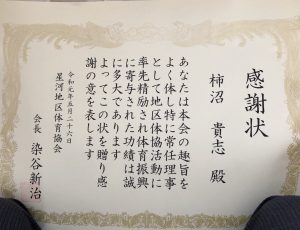 感謝状
柿沼 貴志 殿
あなたは本会の趣旨を
よく体し特に常任理事
として地区体協活動に
率先精励され体育振興
に寄与された功績は誠
に多大であります
よってこの状を贈り感
謝の意を表します
令和元年五月二十六日
星河地区体育協会
会長 染谷新治